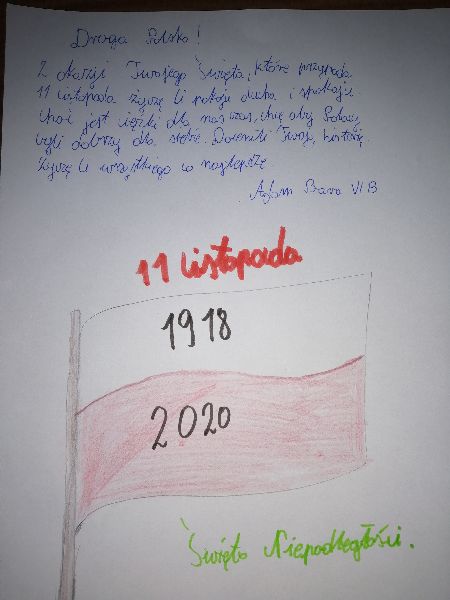 Droga Polsko!
Z okazji Twojego Święta, które przypada
11 listopada życzę Ci pokoju ducha i spokoju.
Choć jest ciężki dla nas czas, chcę aby Polacy
byli dobrzy dla siebie. Docenili Twoją historię.
Życzę Ci wszystkiego co najlepsze.
VI B
11 Listopada
1918
2020
Święto Niepodległości.